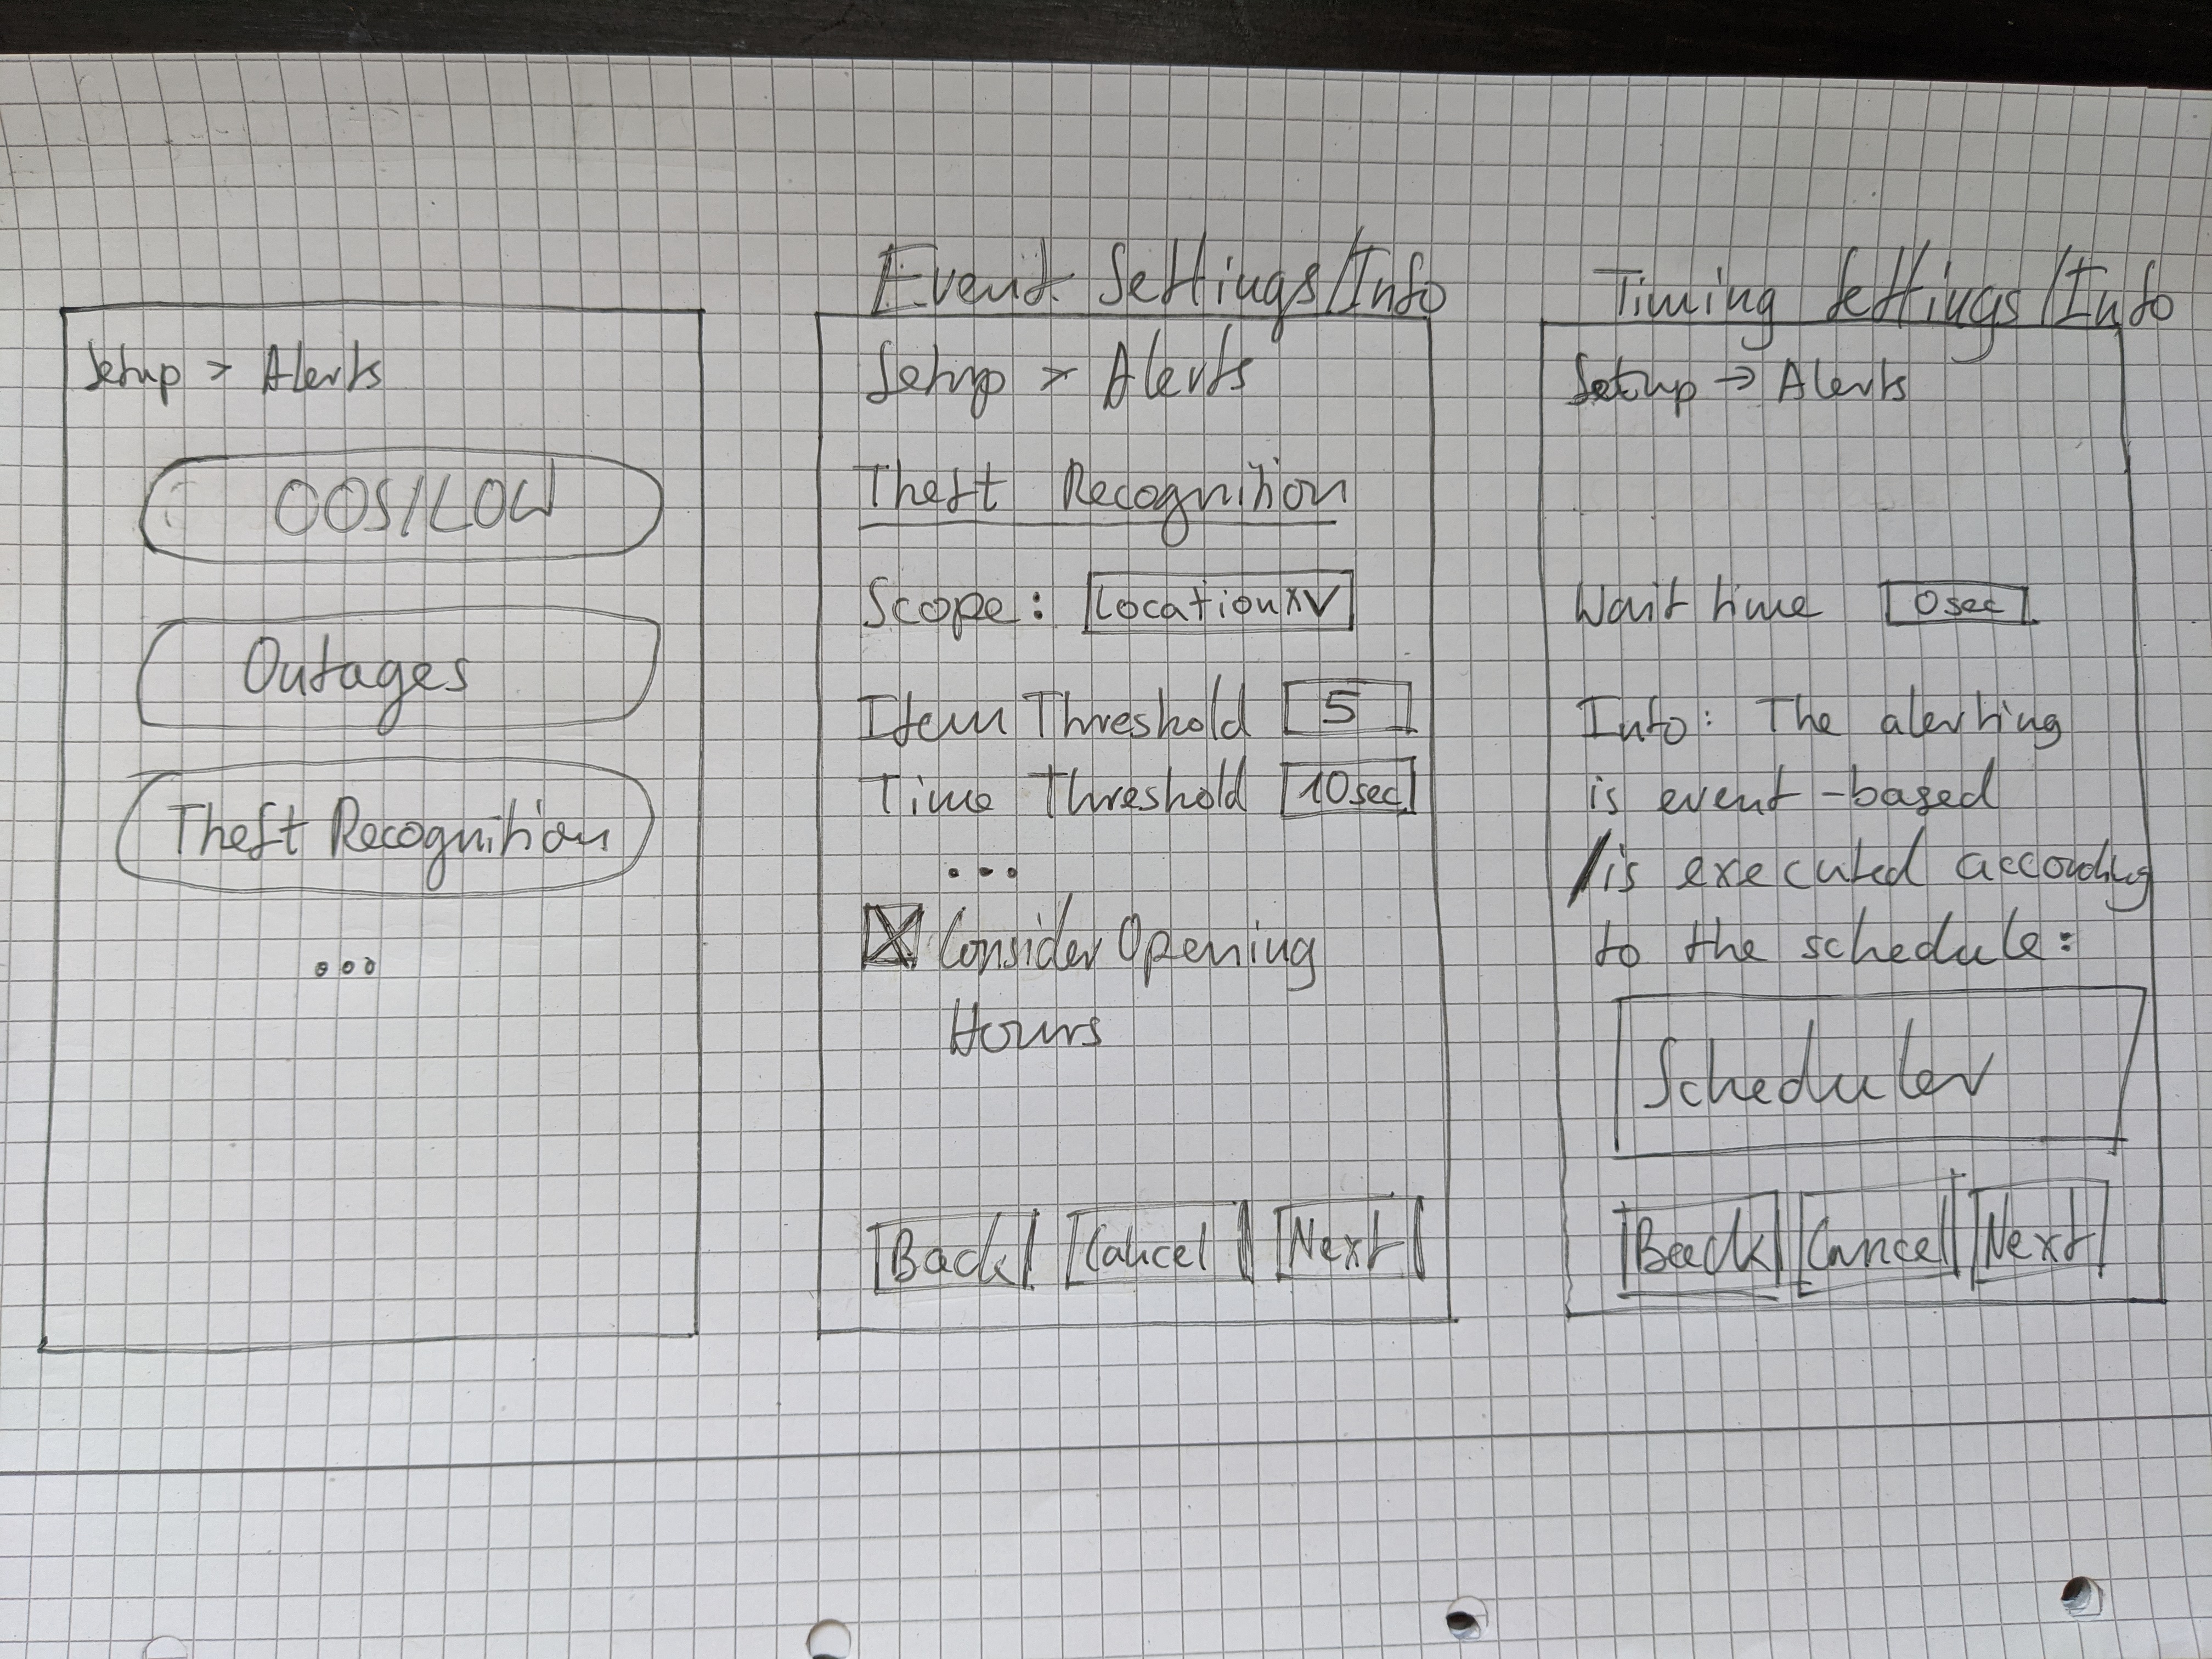 Setup > Alerts
OOS/LOW
Outages
Theft Recognition
...
Event Settings/Info
Setup > Alerts
Theft Recognition
Scope: LocationX V
Item Threshold 5
Time Threshold 10sec
...
X Consider Opening
Hours
Back Cancel Next
Timing Settings/Info
Setup → Alerts
Wait time 0sec
Info: The alerting
is event-based
/is executed according
to the schedule:
Scheduler
Back Cancel Next